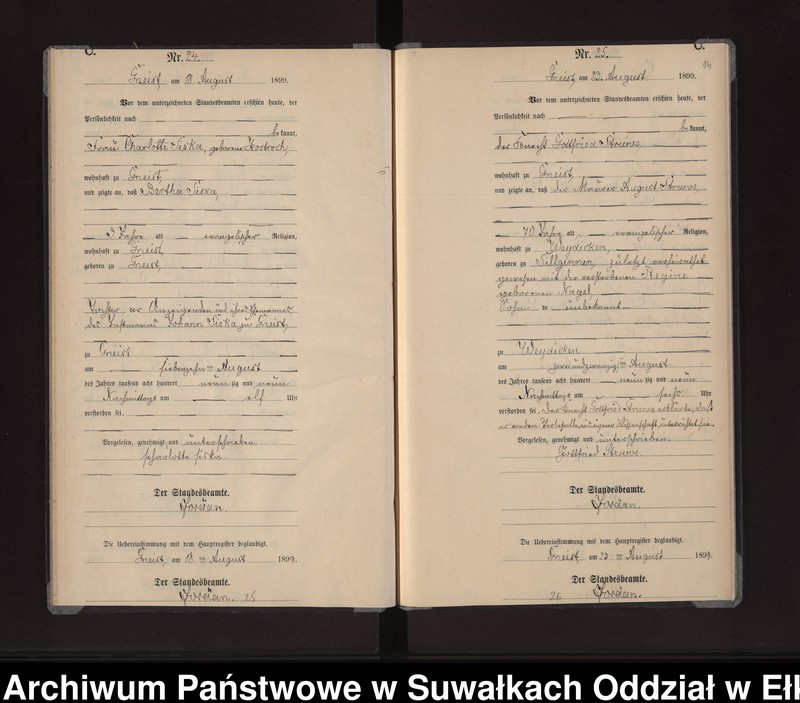 C.
Nr. 24.
Freist am 18. August 1899.
Vor dem unterzeichneten Standesbeamten erschien heute, der
Persönlichkeit nach
be kannt,
Frau Charlotte Siska, geborene
wohnhaft zu Freist,
und zeigte an, daß Bertha Siska,
9 Jahre alt evangelischer Religion,
wohnhaft zu Freist,
geboren zu Freist,
Tochter der Anzeigenden und ihres Ehemannes
des Johann Siska zu Freist,
zu Freist
am siebenzehnten August
des Jahres tausend acht hundert neun zig und neun
Nachmittags um elf Uhr
verstorben sei.
Vorgelesen, genehmigt und unterschrieben
Charlotte Siska.
Der Standesbeamte.
Jordan.
Die Uebereinstimmung mit dem Hauptregister beglaubigt.
Freist, am 18 ten August 1899.
Der Standesbeamte.
Jordan. 25
C.
Nr. 25.
Freist, am 23. August 1899.
Vor dem unterzeichneten Standesbeamten erschien heute, der
Persönlichkeit nach
be kannt,
der Knecht Gottfried Struve,
wohnhaft zu Freist,
und zeigte an, daß der Maurer August Struve
70 Jahre alt, evangelischer Religion,
wohnhaft zu Weydicken,
geboren zu zuletzt verheirathet
gewesen mit der verstorbenen Regine
geborenen Nagel,
Sohn de unbekannt
zu Weydicken
am zweiundzwanzigsten August
des Jahres tausend acht hundert neun zig und neun
Nachmittags um sechs Uhr
verstorben sei. Der Knecht Gottfried Struve erklärte, daß
er von dem Sterbefall aus eigener Wissenschaft unterrichtet sei.
Vorgelesen, genehmigt und unterschrieben.
Gottfried Struve.
Der Standesbeamte.
Jordan.
Die Uebereinstimmung mit dem Hauptregister beglaubigt.
Freist am 23 ten August 1899.
Der Standesbeamte.
26 Jordan.
Archiwum Państwowe w Suwałkach Oddział w Ełk